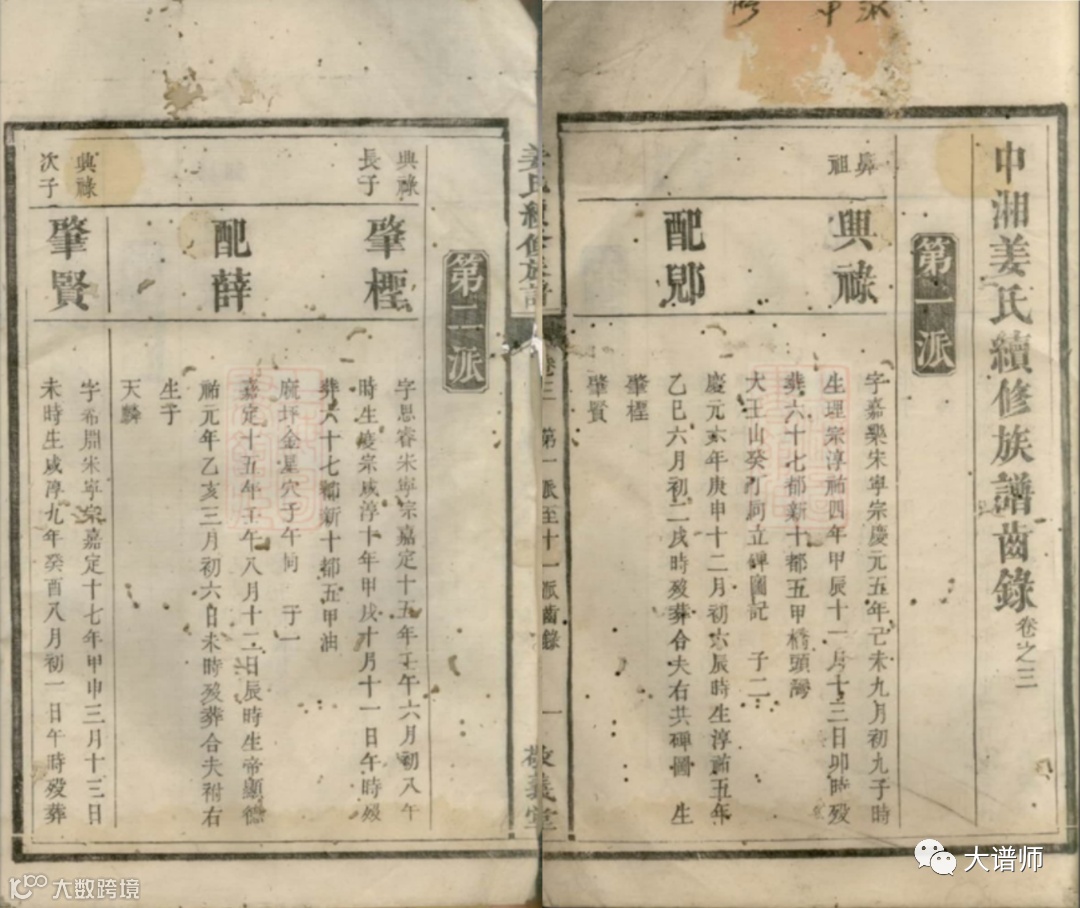 中湘姜氏續修族譜齒錄 卷之三
第一派
鼻祖
興祿
字嘉樂宋寧宗慶元五年己未九月初九子時
生理宗淳祐四年甲辰十一月十三日卯時歿
葬六十七都新十都五甲橋頭灣
大王山癸丁向立碑圖記 子二
配鄭
慶元六年庚申十二月初六辰時生淳祐五年
乙巳六月初二戌時歿葬合夫右共碑圖 生
肇樫
肇賢
姜氏續修族譜
卷三 第一派至十一派齒錄 一
敬義堂
第二派
興祿長子
肇樫
字思睿宋寧宗嘉定十五年壬午六月初八午
時生度宗咸淳十年甲戌十月十一日午時歿
葬六十七都新十都五甲油
廠坪金星穴子午向 子一
配薛
嘉定十五年壬午八月十二日辰時生帝顯德
祐元年乙亥三月初六日未時歿葬合夫祔右
生子
天麟
興祿次子
肇賢
字希淵宋寧宗嘉定十七年甲申三月十三日
未時生咸淳九年癸酉八月初一日午時歿葬
大谱师
大数跨境